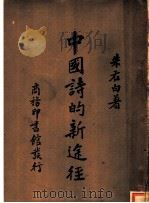 朱右白著
中國詩的新途徑
商務印書館發行